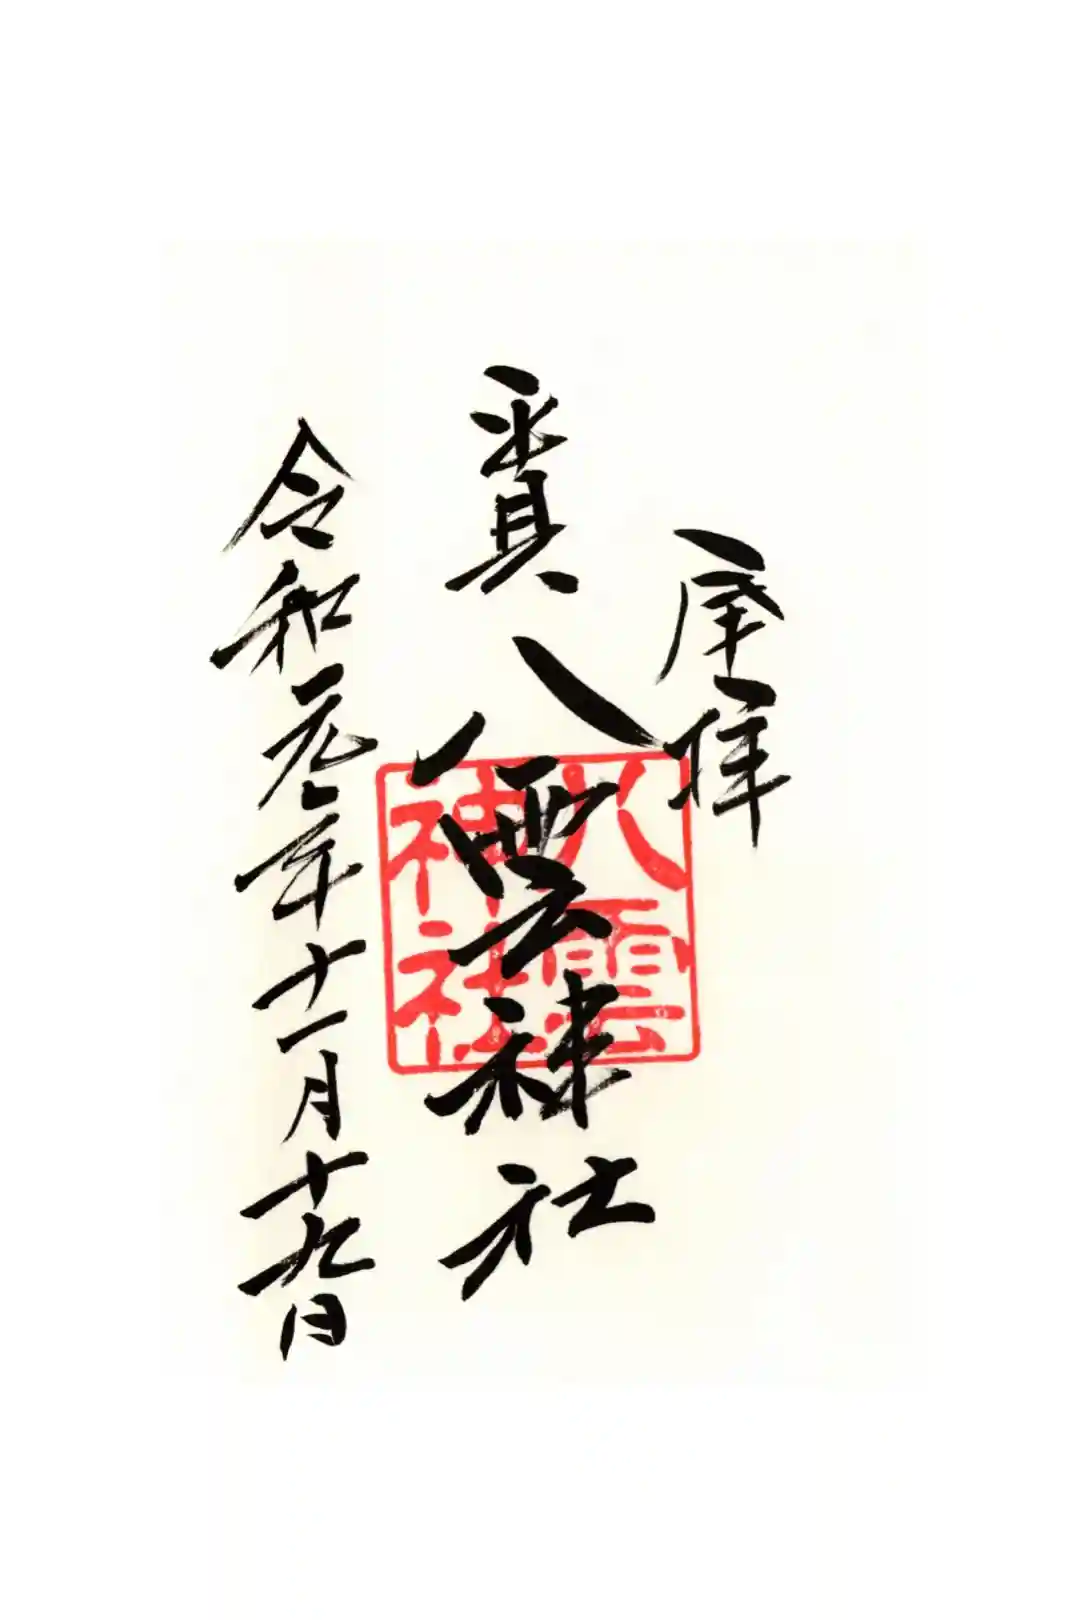 拝
八雲神社
八雲神社
令和元年十一月十九日